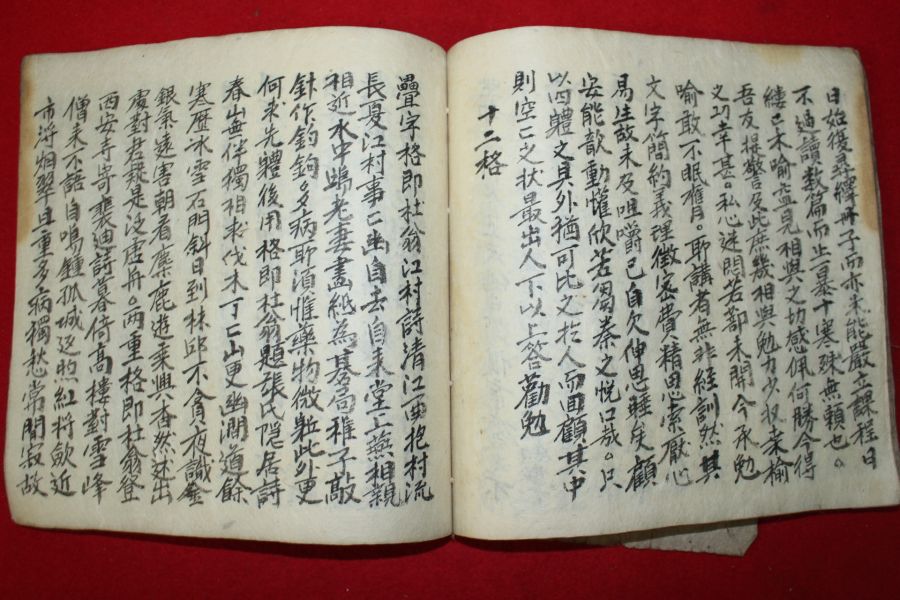 日始復尋繹冊子而亦未能嚴立課程日
不過讀数篇而止暴十寒殊無頼也。
縷已木喻益見相與之切感佩何勝今得
吾友提警及此庶幾相與勉力少収桒榆
之功幸甚。私心迷悶若鄙未開今承勉
喻敢不眠膺。耶講者無非經訓然其
文字簡約義理微密費精思索厭心
易生故未及咀嚼已自欠伸思睡矣顧
安能歆動懽欣若芻豢之悅口哉。只
以四體之具外猶可比之於人而回顧其中
則空〻之状最出人下以上答勸勉
十二格
疊字格即杜翁江村詩清江一曲抱村流
長夏江村事〻幽自去自来堂上燕相親
相近水中鷗老妻畫紙為棊局稚子敲
針作釣鉤多病耶須惟藥物微軀此外更
何求先體後用格即杜翁題張氏隠居詩
春山無伴獨相求伐木丁〻山更幽澗道餘
寒歴冰雪石門斜日到林邱不貪夜識金
銀氣遠害朝看麋鹿遊乗興杳然迷出
處對君疑是泛虚舟。两重格即杜翁登
西安寺寄裴迪詩暮倚髙樓對雪峰
僧来不語自鳴鍾孤城返照紅将斂近
市浮烟翠且重多病獨愁常闃寂故